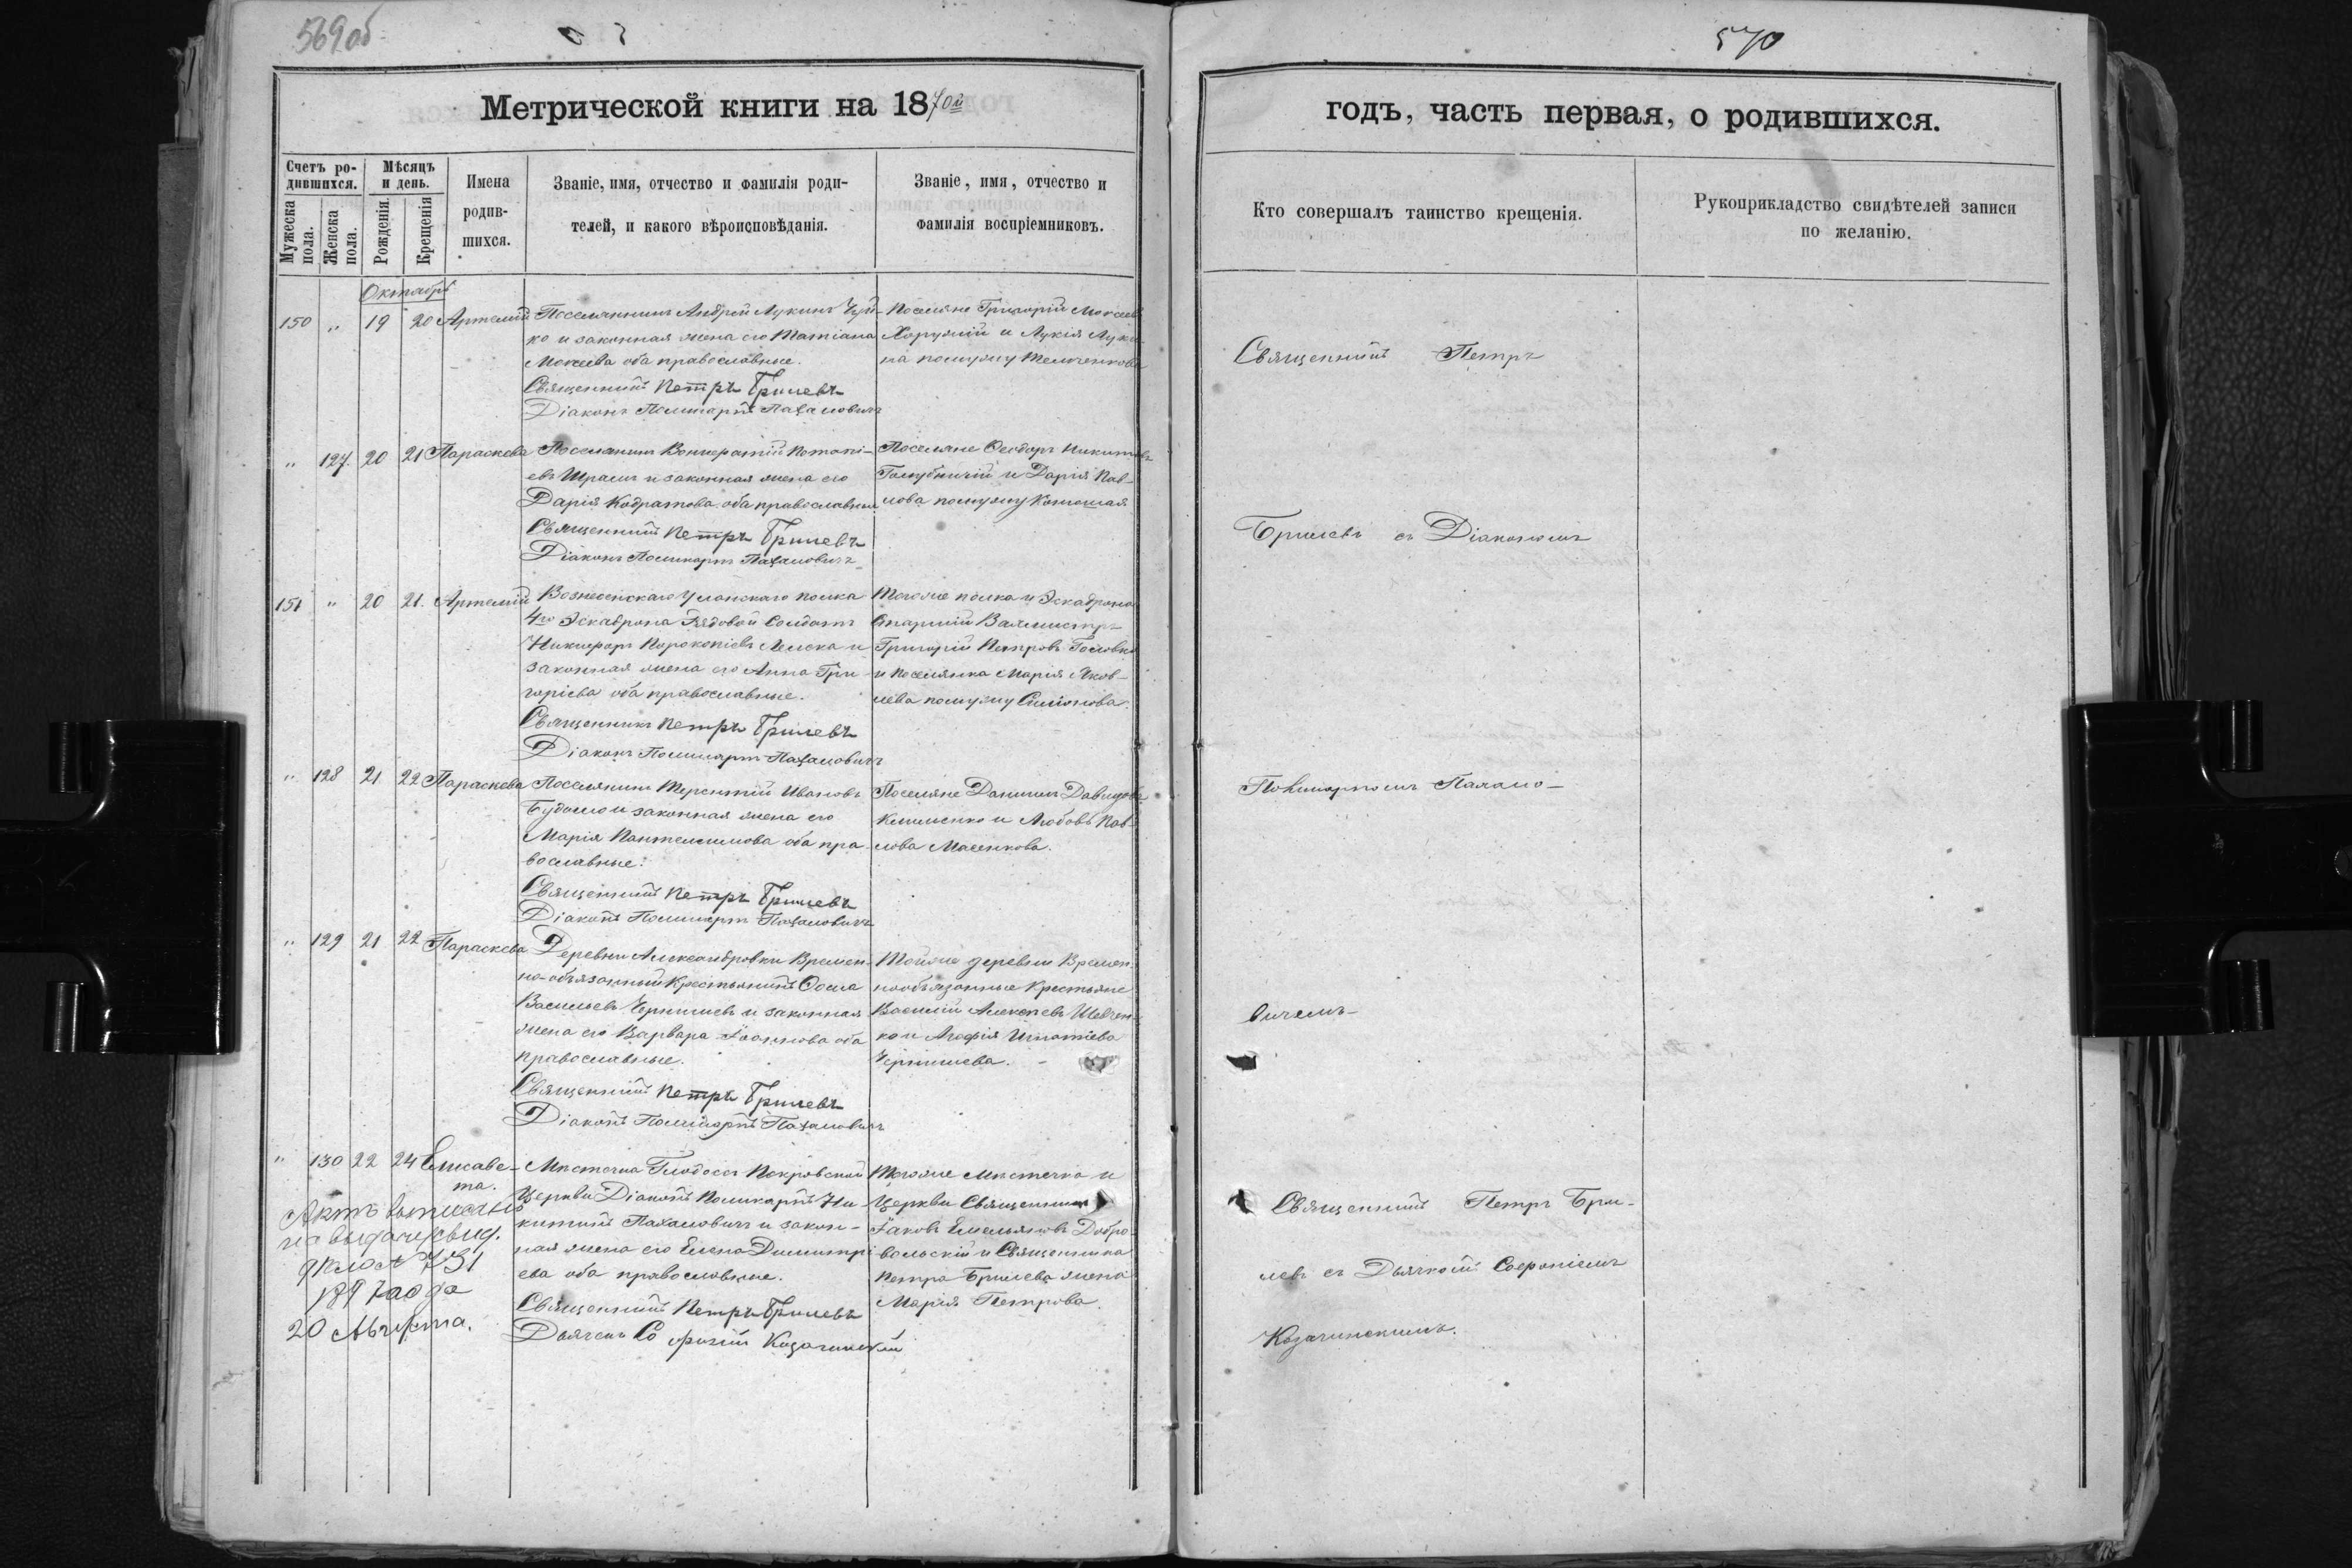 569 об
570
Метрической книги на 1870й
годъ, часть первая, о родившихся.
Счетъ ро-
дившихся.
Мужеска пола.
Женска пола.
Мѣсяцъ
и день.
Рожденія.
Крещенія
Имена
родив-
шихся.
Званіе, имя, отчество и фамилія роди-
телей, и какого вѣроисповѣданія.
Званіе, имя, отчество и
фамилія воспріемниковъ.
Кто совершалъ таинство крещенія.
Рукоприкладство свидѣтелей записи
по желанію.
Октябрь
150 " 19 20 Артемій
Поселянинъ Андрей Лукинъ Чуй-
ко и законная жена его Татіана
Мокиева оба православные.
Священникъ Петръ Брилевъ
Діаконъ Поликарпъ Пахаловичъ
Поселяне Григорій
Хоружій и Лукія Луки-
на помужу Теличенкова
" 127. 20 21 Параскева
Поселянинъ Потапі-
евъ и законная жена его
Дарія Кодратова оба православные
Священникъ Петръ Брилевъ
Діаконъ Поликарпъ Пахаловичъ
Поселяне Ѳеодоръ Никитовъ
Голубничій и Дарія Пав-
лова помужу
151 " 20 21. Артемій
Вознесенскаго Уланскаго полка
4го Эскадрона Рядовой Солдатъ
Никифоръ Прокопіевъ и
законная жена его Анна Гри-
горіева оба православные.
Священникъ Петръ Брилевъ
Діаконъ Поликарпъ Пахаловичъ
Тогоже полка и Эскадрона
Старшій Вахмистръ
Григорій Петровъ Головко
и поселянка Марія Яков-
лева помужу
" 128 21 22 Параскева
Поселянинъ Терентій Ивановъ
и законная жена его
Марія Пантелимонова оба пра-
вославные.
Священникъ Петръ Брилевъ
Діаконъ Поликарпъ Пахаловичъ
Поселяне Даниилъ Давидовъ
Клименко и Любовь Пав-
лова Масенкова.
" 129 21 22 Параскева
Деревни Александровки Времен-
но-обязанный Крестьянинъ
Васильевъ Чернишевъ и законная
жена его Варвара Іоаннова оба
православные.
Священникъ Петръ Брилевъ
Діаконъ Поликарпъ Пахаловичъ
Тойже деревни Времен-
нообязанные Крестьяне
Василій Алексѣевъ Шевчен-
ко и Агафія Игнатіева
Чернишева.
" 130 22 24 Елисаве-
та.
Мѣстечка Глодосъ Покровской
Церкви Діаконъ Поликарпъ Ни-
китинъ Пахаловичъ и закон-
ная жена его Елена Димитрі-
ева оба православные.
Священникъ Петръ Брилевъ
Дьячекъ Софроній Козачинскій
Тогоже Мѣстечка и
Церкви Священникъ
Іаковъ Емельяновъ Добро-
вольскій и Священника
Петра Брилева жена
Марія Петрова.
Актъ выписанъ
на выдачу свид.
дѣло № 731
1897 года
20 Августа.
Священникъ Петръ
Брилевъ съ Діакономъ
Поликарпомъ Пахало-
вичемъ
Священникъ Петръ Бри-
левъ съ Дьячкомъ Софроніемъ
Козачинскимъ.